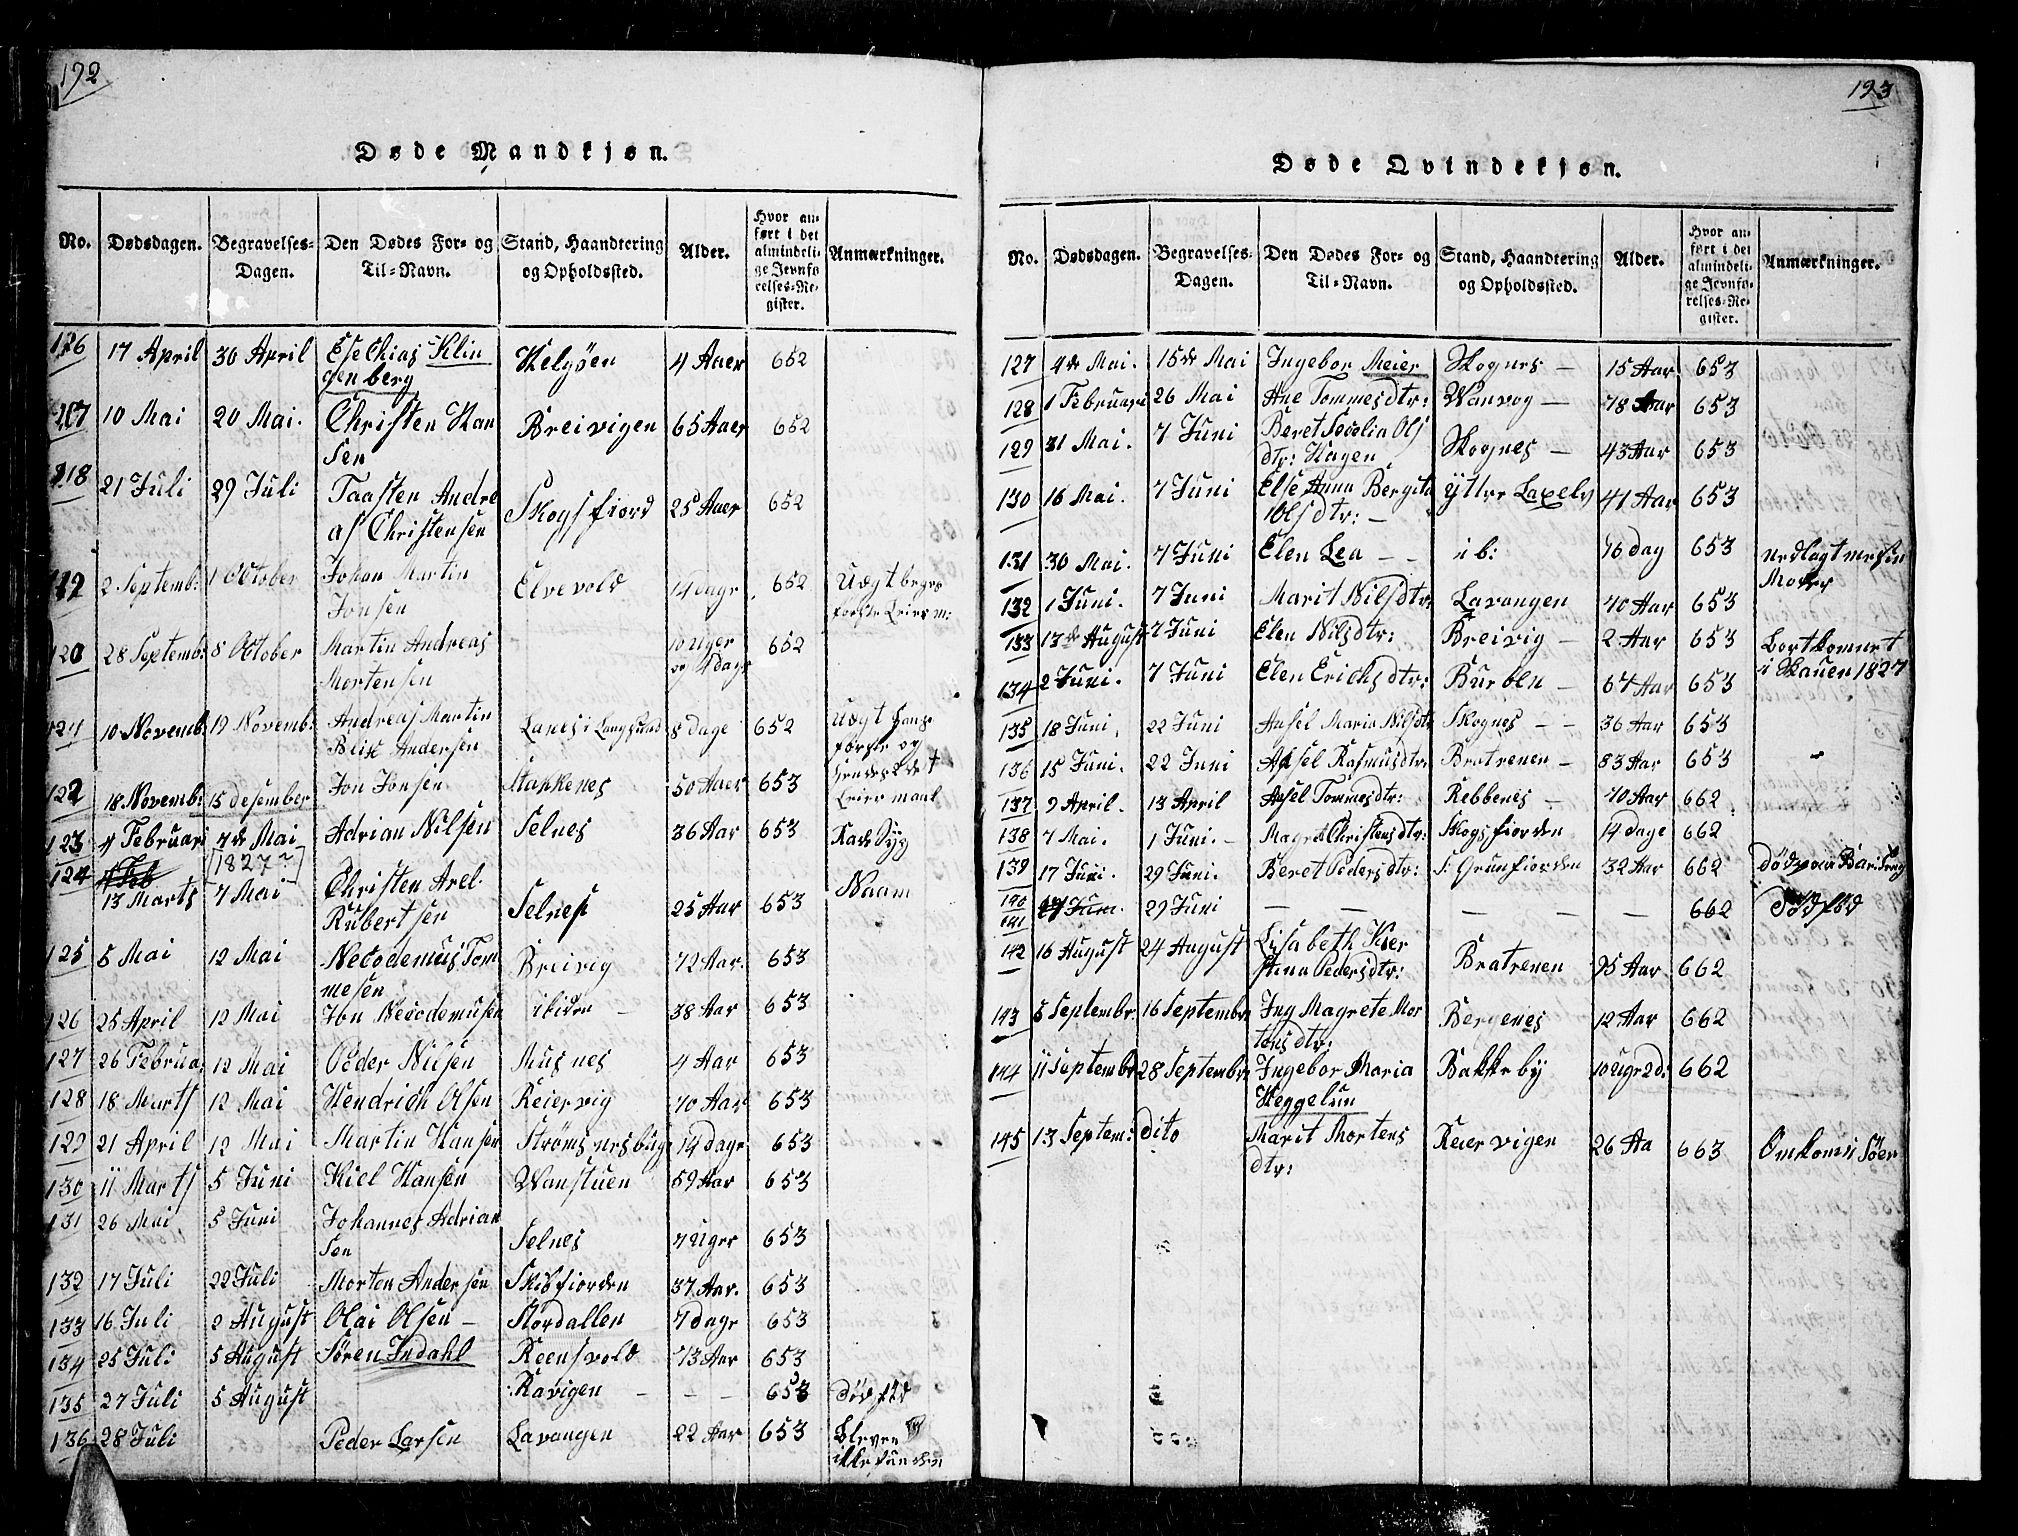 192
Døde Mandkjøn.
No. Dødsdagen. Begravelses-Dagen. Den Dødes For- og Til-Navn. Stand, Haandtering og Opholdssted. Alder. Hvor anført i det almindelige Jevnførelses-Register. Anmærkninger.
17 April 30 April Esechias Klin Helgøen 4 Aaer 652
genberg
10 Mai 20 Mai. Christen Han Breivigen 65 Aaer 652
sen
21 Juli 29 Juli Taasten Andre Skogsfiord 25 Aaer 652
as Christensen
2 Septemb: 1 October Johan Martin Elvevold 14 dage 652 Uægt
Jonsen
120 28 Septemb: 8 October Martin Andreas 10 Uger 652
Mortensen og 4 dage
10 Novemb: 19 Novemb: Andreas Martin Lanes i Langsund 8 dage 652 Uægt
Andersen
122 18 Novemb: 15 desember Jon Jonsen Stakkenes 50 Aaer 653
123 4 Februari 7de Mai Adrian Nilsen Selnes 36 Aar 653
[1827?]
124 4 Feb
13 Marts 7 Mai Christen Arel Selnes 25 Aar 653 Naam
Rubertsen
125 5 Mai 12 Mai Necodemus Tom Breivig 72 Aar. 653
mesen
126 25 April 12 Mai Jon Necodemusen 38 Aar 653
127 26 Februa 12 Mai Peder Nilsen Musnes 4 Aar 653
128 18 Marts 12 Mai Hendrich Olsen Reiervig 70 Aar 653
129 21 April 12 Mai Martin Hansen 14 dage 653
130 11 Marts 5 Juni Kiel Hansen Wanstuen 59 Aar 653
131 26 Mai 5 Juni Johannes Adrian Selnes 7 Uger 653
sen
132 17 Juli 22 Juli Morten Andersen Skibfiorden 37 Aar. 653
133 16 Juli 2 August Olai Olsen Stordallen 7 dage 653
134 25 Juli 5 August Søren Indahl Reensvold 73 Aar 653
135 27 Juli 5 August Ravigen 653 Dødfød
136 28 Juli Peder Larsen Lavangen 22 Aar 653 Bleven
ikke funden
193
Døde Qvindekjøn.
No. Dødsdagen. Begravelses-Dagen. Den Dødes For- og Til-Navn. Stand, Haandtering og Opholdssted. Alder. Hvor anført i det almindelige Jevnførelses-Register. Anmærkninger.
127 4de Mai. 15de Mai Ingebor Meier Skognes 15 Aar 653
128 1 Februari 26 Mai Ane Tommesdtr: Wanvog 78 Aar 653
129 31 Mai. 7 Juni Beret Secelia Ols Skognes 43 Aar 653
dtr: Hagen
130 16 Mai. 7 Juni Else Anna Bergita Yttre Laxelv 41 Aar 653
Olsdtr:
131 30 Mai. 7 Juni Elen Lea ib: 16 dag 653 nedlagt
Moder
132 1 Juni. 7 Juni Marit Nilsdtr: Lavangen 40 Aar 653
133 13de August 7 Juni Elen Nilsdtr: Breivig 2 Aar 653 Bortkomet
134 2 Juni. 7 Juni Elen Erichsdtr: Burøen 67 Aar 653 i Skauen 1827
135 18 Juni. 22 Juni Aasel Maria Nilsdtr Skognes 36 Aar 653
136 15 Juni. 22 Juni Axsel Rasmusdtr: Bratrenen 83 Aar 653
137 9 April. 13 April Axsel Tommesdtr: Rebbenes 70 Aar 662
138 7 Mai. 1 Juni. Magret Christensdtr: Skogsfiorden 14 dage 662
139 17 Juni. 29 Juni. Beret Pedersdtr: S: Grunfiorden 32 Aar 662 døde
140
141 17 Juni. 29 Juni 662 Dødfød
142 16 August 24 August Lisabeth Kier Bratrenen 95 Aar 662
stina Pedersdtr:
143 5 Septembr. 16 Septembr. Ing Magrete Mor Bergenes 12 Aar 662
tensdtr:
144 11 Septembr 28 Septembr. Ingebor Maria Bakkeby 10 Uger 2 d: 662
Heggelun
145 13 Septem: dito Marit Mortens Reiervigen 26 Aa 663 Omkomen Søen
dtr: